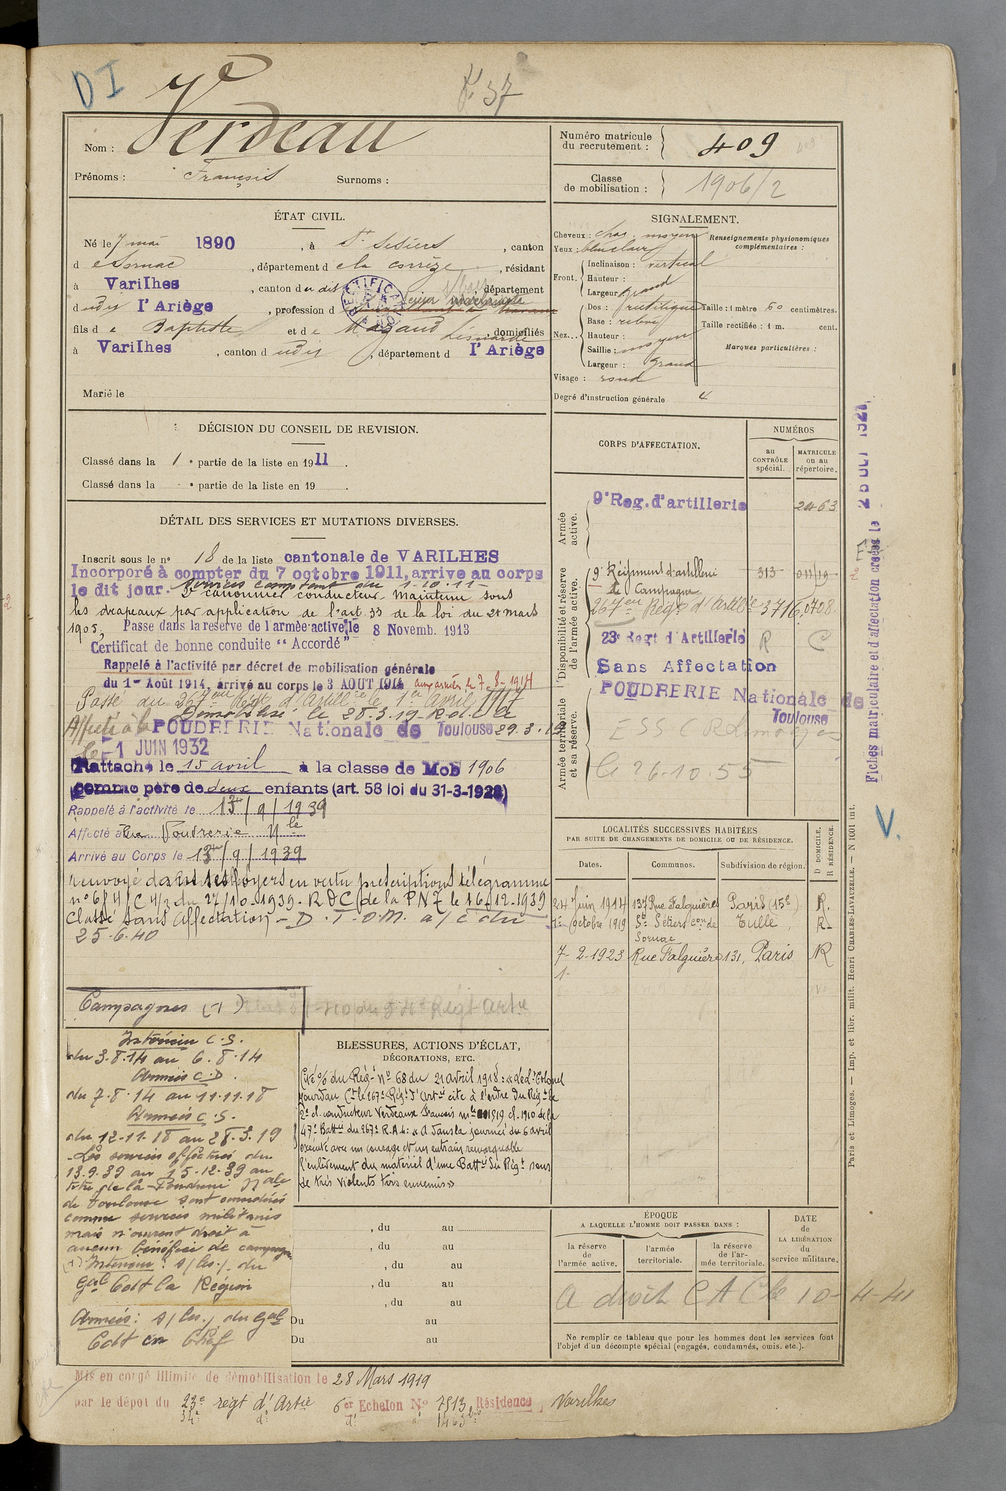 DI
F. 57
Nom : Verdeau
Prénoms : François Surnoms :
Numéro matricule du recrutement : 409
Classe de mobilisation : 1906/2
ÉTAT CIVIL.
Né le 7 mai 1890, à St Sétiers, canton
d e Sornac, département d e la Corrèze, résidant
à Varilhes, canton d u dit, département
d udit l'Ariège, profession d
fils d e Baptiste et d e Magaud Léonarde, domiciliés
à Varilhes, canton d udit, département d l'Ariège
Marié le
SIGNALEMENT.
Cheveux : chat. moyen
Yeux : bleu clair
Renseignements physionomiques complémentaires :
Front. Inclinaison : vertical
Hauteur :
Largeur : grand
Nez... Dos :
Base :
Hauteur :
Saillie : moyen
Largeur : grand
Visage : rond
Taille : 1 mètre 60 centimètres.
Taille rectifiée : 1 m. cent.
Marques particulières :
Degré d'instruction générale 4
DÉCISION DU CONSEIL DE REVISION.
Classé dans la 1e partie de la liste en 1911.
Classé dans la e partie de la liste en 19 .
DÉTAIL DES SERVICES ET MUTATIONS DIVERSES.
Inscrit sous le n° 18 de la liste cantonale de VARILHES
Incorporé à compter du 7 octobre 1911, arrivé au corps
le dit jour. services comptant du 1-10-11
2e canonnier conducteur. Maintenu sous
les drapeaux par application de l'art. 33 de la loi du 21 mars
1905, Passé dans la réserve de l'armée active, le 8 Novemb. 1913
Certificat de bonne conduite "Accordé"
Rappelé à l'activité par décret de mobilisation générale
du 1er Août 1914, arrivé au corps le 3 AOUT 1914 aux armées le 7-8-1914
Passé au 267eme Régt d'Artille le 1er avril 1917
Démobilisé le 28.3.19
Affecté à la POUDRERIE Nationale de Toulouse 29.3.19
le 1 JUIN 1932
Rattaché le 15 avril à la classe de Mob 1906
comme père de deux enfants (art. 58 loi du 31-3-1928)
Rappelé à l'activité le 13/9/1939
Affecté à la Poudrerie Nle
Arrivé au Corps le 13/9/1939
renvoyé dans ses foyers en vertu prescriptions télégramme
n° 6/4/C 4/2 du 27/10-1939. RDC de la PNT le 16-12-1939
Classé Sans Affectation - D.T.O.M. a/c du
25-6-40
CORPS D'AFFECTATION.
NUMÉROS
au CONTRÔLE spécial.
MATRICULE ou au répertoire.
Armée active.
9e Reg. d'artillerie 2463
Disponibilité et réserve de l'armée active.
9e Régiment d'artillerie de Campagne 313
267eme Régt d'Artille
23e Regt d'Artillerie R C
Sans Affectation
Armée territoriale et sa réserve.
POUDRERIE Nationale de
Toulouse
le 26.10.55
Fiches matriculaire et d'affectation créées le
V.
LOCALITÉS SUCCESSIVES HABITÉES
PAR SUITE DE CHANGEMENTS DE DOMICILE OU DE RÉSIDENCE.
Dates. Communes. Subdivision de région. D DOMICILE. R RÉSIDENCE.
24 Juin 1914 137 Rue Falguière Paris (15e) R.
Octobre 1919 St Sétiers con de Sornac Tulle R.
7-2-1923 Rue Falguière 131, Paris R
Campagnes (1)
Intérieur C.S.
du 3.8.14 au 6.8.14
Armées C.D.
du 7.8.14 au 11.11.18
Armées C.S.
du 12-11.18 au 28.3.19
Les services effectués du
13.9.39 au 15.12.39 au
titre de la Poudrerie Nale
de Toulouse sont considérés
comme services militaires
mais n'ouvrent droit à
aucun bénéfice de campagne
(1) Intérieur : s/les/ du
Gal Cdt la Région
Armées : s/les/ du Gal
Cdt en Chef
BLESSURES, ACTIONS D'ÉCLAT,
DÉCORATIONS, ETC.
Cité O/ du Régt N° 68 du 21 avril 1918 : « Le Lt-Colonel
Jourdan Ct le 267e Régt d'Artie cite à l'ordre du Régt le
2e cl. conducteur Verdeaux François
47e Battie du 267e R.A.C. : « A dans la journée du 6 avril
exécuté avec un courage et un entrain remarquable
l'enlèvement du matériel d'une Battie du Régt sous
de très violents tirs ennemis »
, du au
, du au
, du au
, du au
, du au
Du au
Du au
ÉPOQUE
A LAQUELLE L'HOMME DOIT PASSER DANS :
la réserve de l'armée active.
l'armée territoriale.
la réserve de l'armée territoriale.
DATE DE LA LIBÉRATION du service militaire.
A droit C A C le 10-4-41
Ne remplir ce tableau que pour les hommes dont les services font
l'objet d'un décompte spécial (engagés, condamnés, omis, etc.).
Paris et Limoges. — Imp. et libr. milit. Henri CHARLES-LAVAUZELLE. — N 1601 int.
Mis en congé illimité de démobilisation le 28 Mars 1919
par le dépôt du 23e régt d'Artie 6er Echelon N° 7513 Résidence, Varilhes
34e d° d° 1463bis